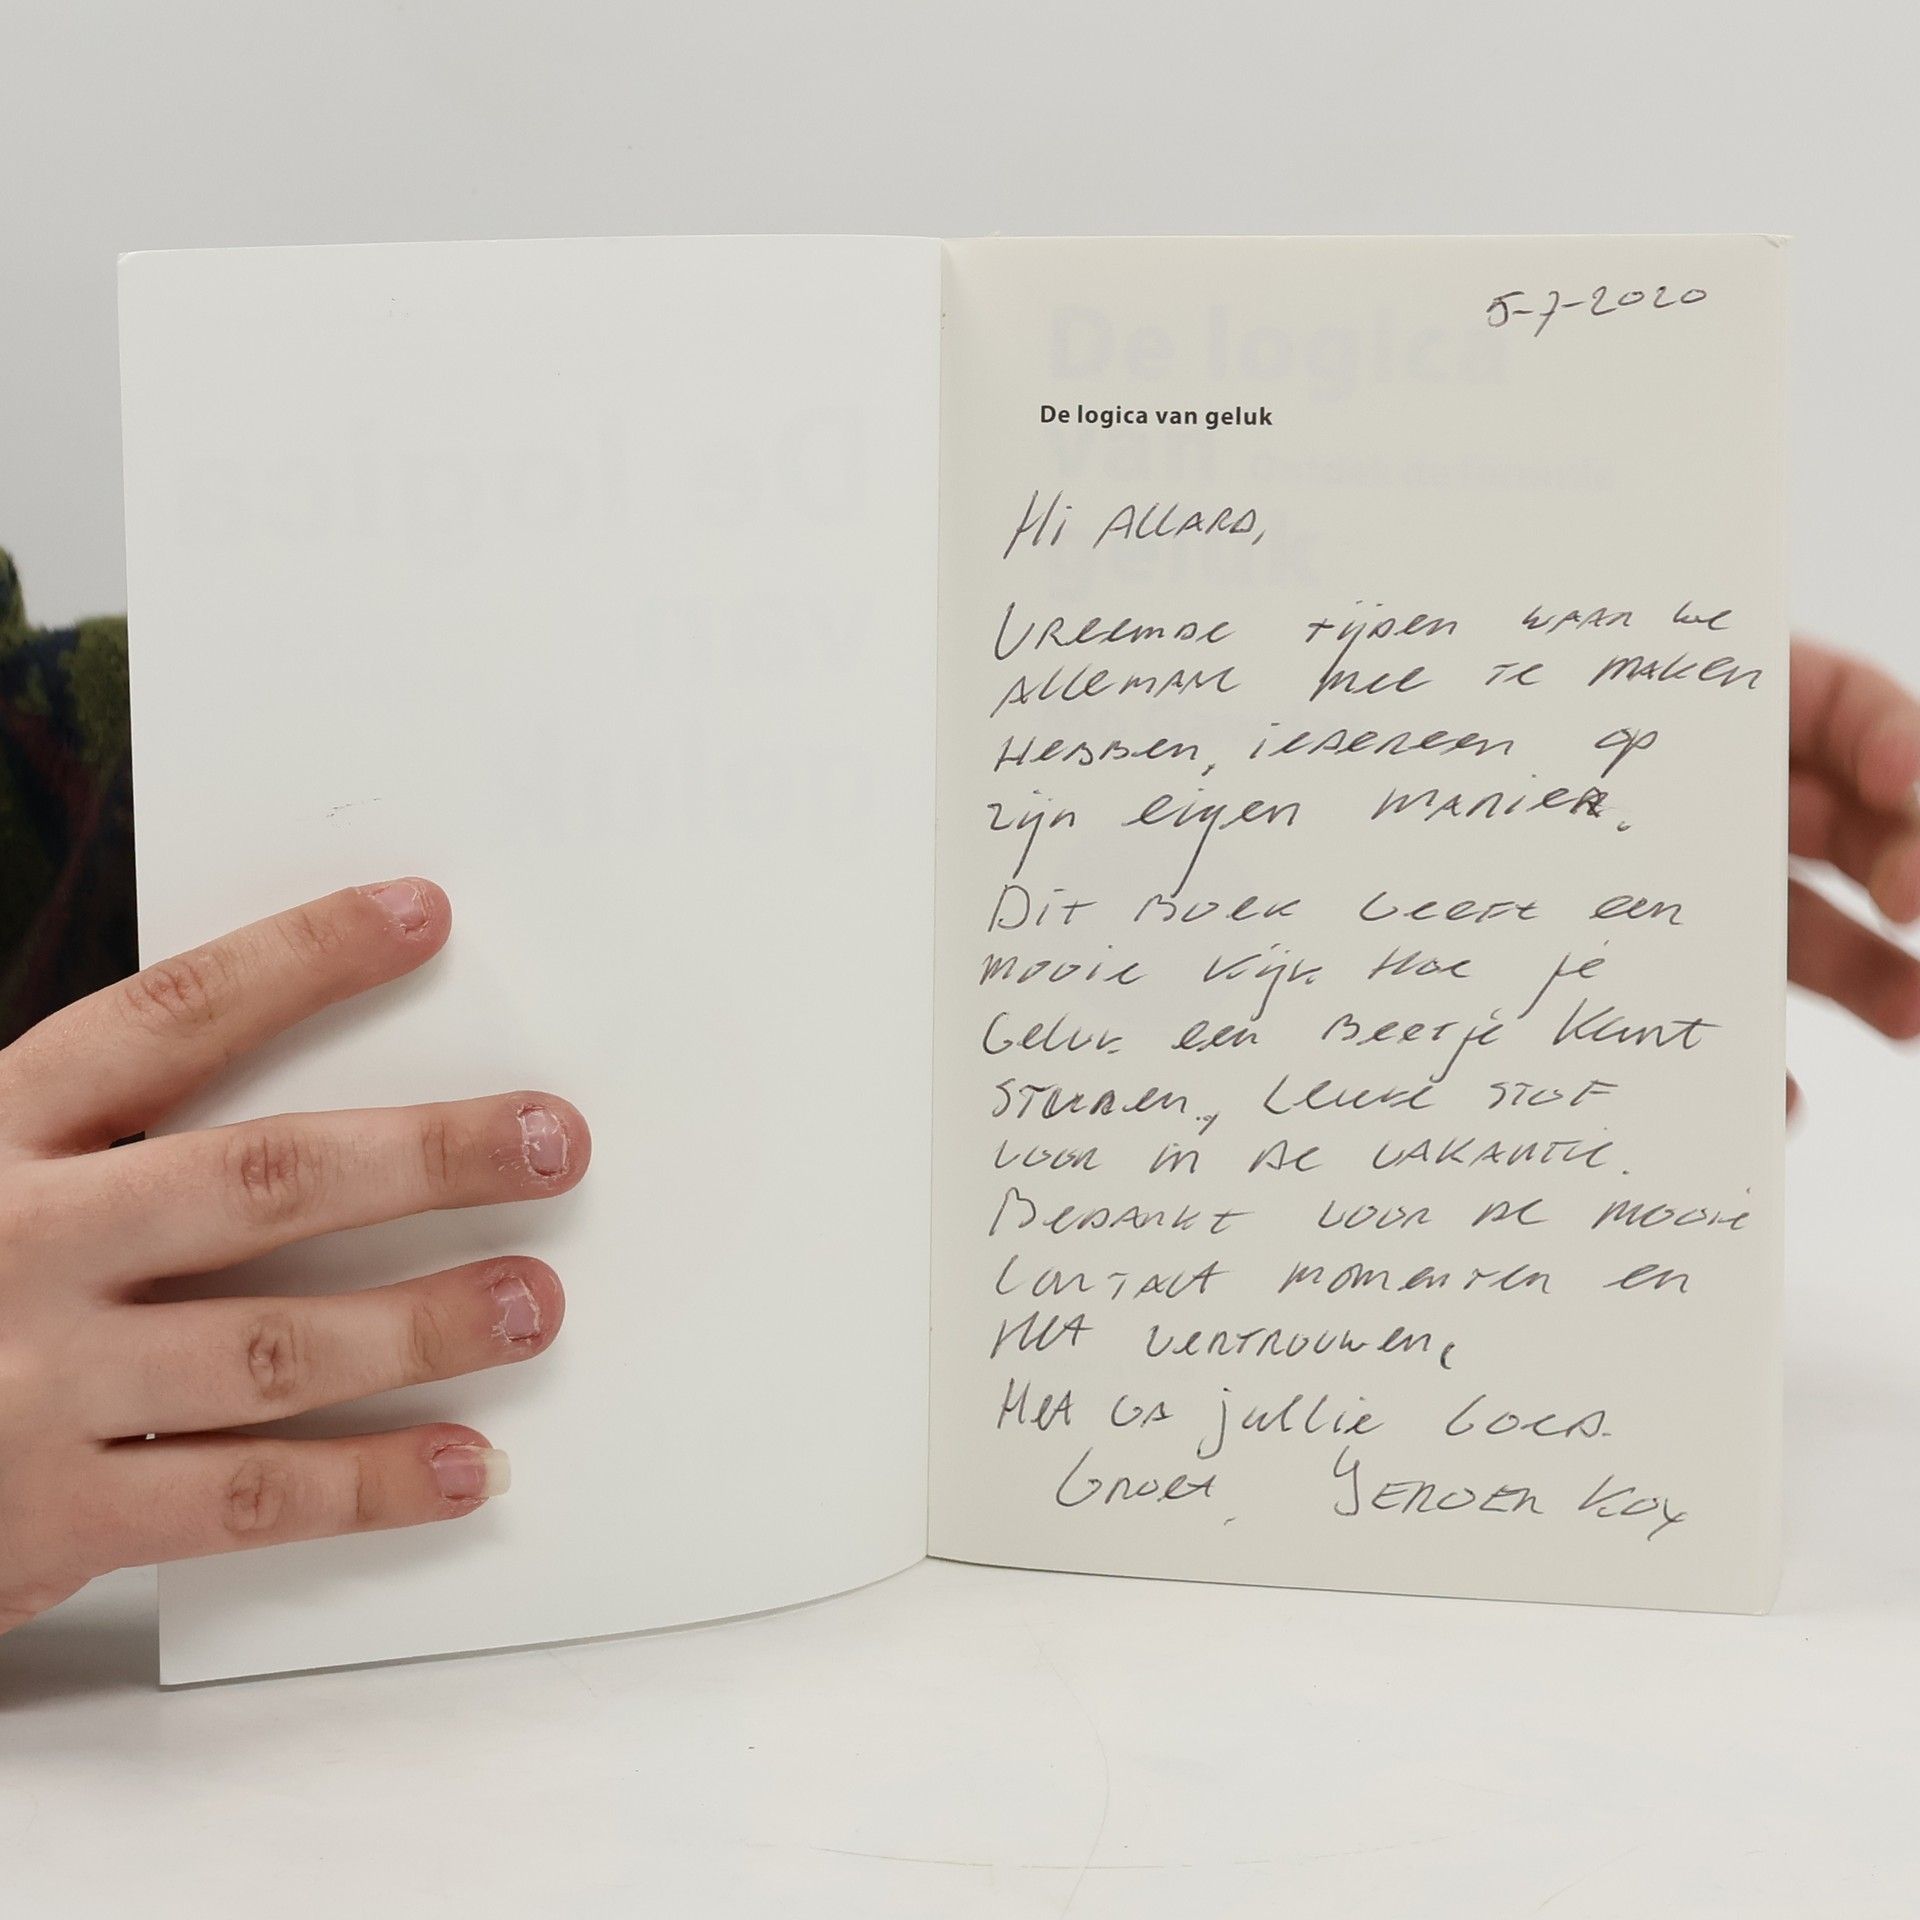 5-7-2020
De logica van geluk
Hi Allard,
Vreemde tijden waar we
allemaal mee te maken
hebben, iedereen op
zijn eigen manier.
Dit boek geeft een
mooie kijk hoe je
geluk een beetje kunt
sturen, leuke stof
voor in de vakantie.
Bedankt voor de mooie
contact momenten en
het vertrouwen,
Het ga jullie goed.
Groet, Jeroen Kox